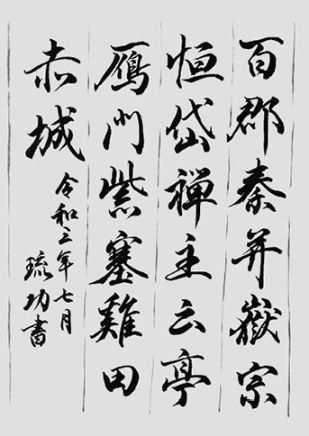 百郡秦并嶽宗
恒岱禅主云亭
鴈門紫塞雞田
赤城
令和三年七月
琉功書